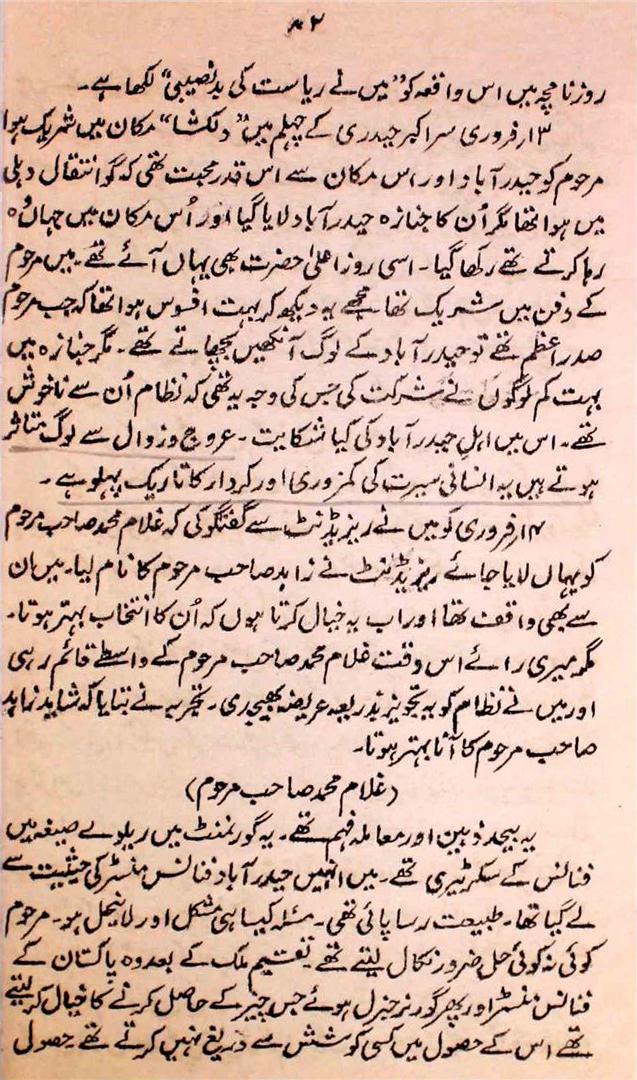 ۴۲
روزنامچہ میں اس واقعہ کو ”میں نے ریاست کی بدنصیبی“ لکھا ہے۔
۱۳؍فروری سر اکبر حیدری کے چہلم میں ”دلکشا“ مکان میں شریک ہوا
مرحوم کو حیدرآباد اور اس مکان سے اس قدر محبت تھی کہ گو انتقال دہلی
میں ہوا تھا مگر اُن کا جنازہ حیدرآباد لایا گیا اور اُس مکان میں جہاں وہ
رہا کرتے تھے رکھا گیا۔ اسی روز اعلیٰ حضرت بھی یہاں آئے تھے۔ میں مرحوم
کے دفن میں شریک تھا مجھے یہ دیکھ کر بہت افسوس ہوا تھا کہ جب مرحوم
صدر اعظم تھے تو حیدرآباد کے لوگ آنکھیں بچھاتے تھے۔ مگر جنازہ میں
بہت کم لوگوں نے شرکت کی جس کی وجہ یہ تھی کہ نظام اُن سے ناخوش
تھے۔ اس میں اہل حیدرآباد کی کیا شکایت۔ عروج و زوال سے لوگ متاثر
ہوتے ہیں یہ انسانی سیرت کی کمزوری اور کردار کا تاریک پہلو ہے۔
۱۴؍فروری کو میں نے ریزیڈنٹ سے گفتگو کی کہ غلام محمد صاحب مرحوم
کو یہاں لایا جائے ریزیڈنٹ نے زاہد صاحب مرحوم کا نام لیا۔ میں ان
سے بھی واقف تھا اور اب یہ خیال کرتا ہوں کہ اُن کا انتخاب بہتر ہوتا۔
مگر میری رائے اس وقت غلام محمد صاحب مرحوم کے واسطے قائم رہی
اور میں نے نظام کو یہ تجویز بذریعہ عریضہ بھیجدی۔ تجربہ نے بتایا کہ شاید زاہد
صاحب مرحوم کا آنا بہتر ہوتا۔
(غلام محمد صاحب مرحوم)
یہ بیحد ذہین اور معاملہ فہم تھے۔ یہ گورنمنٹ میں ریلوے صیغہ میں
فنانس کے سکرٹیری تھے۔ میں انہیں حیدرآباد فنانس منسٹر کی حیثیت سے
لے گیا تھا۔ طبیعت رسا پائی تھی۔ مسئلہ کیسا ہی مشکل اور لاینحل ہو۔ مرحوم
کوئی نہ کوئی حل ضرور نکال لیتے تھے۔ تقسیم ملک کے بعد وہ پاکستان کے
فنانس منسٹر اور پھر گورنر جنرل ہوئے جس چیز کے حاصل کرنے کا خیال کر لیتے
تھے اس کے حصول میں کسی کوشش سے دریغ نہیں کرتے تھے۔ حصول